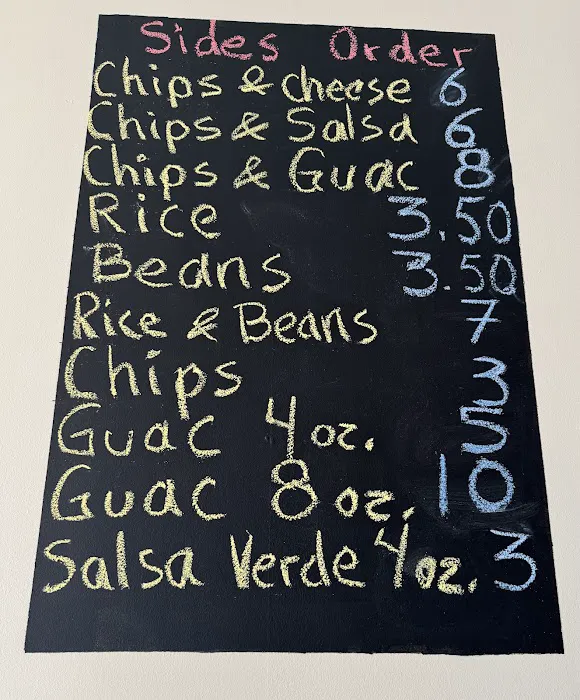 Sides Order
Chips & cheese 6
Chips & Salsa 6
Chips & Guac 8
Rice 3.50
Beans 3.50
Rice & Beans 7
Chips 3
Guac 4 oz. 5
Guac 8 oz. 10
Salsa Verde 4oz. 3